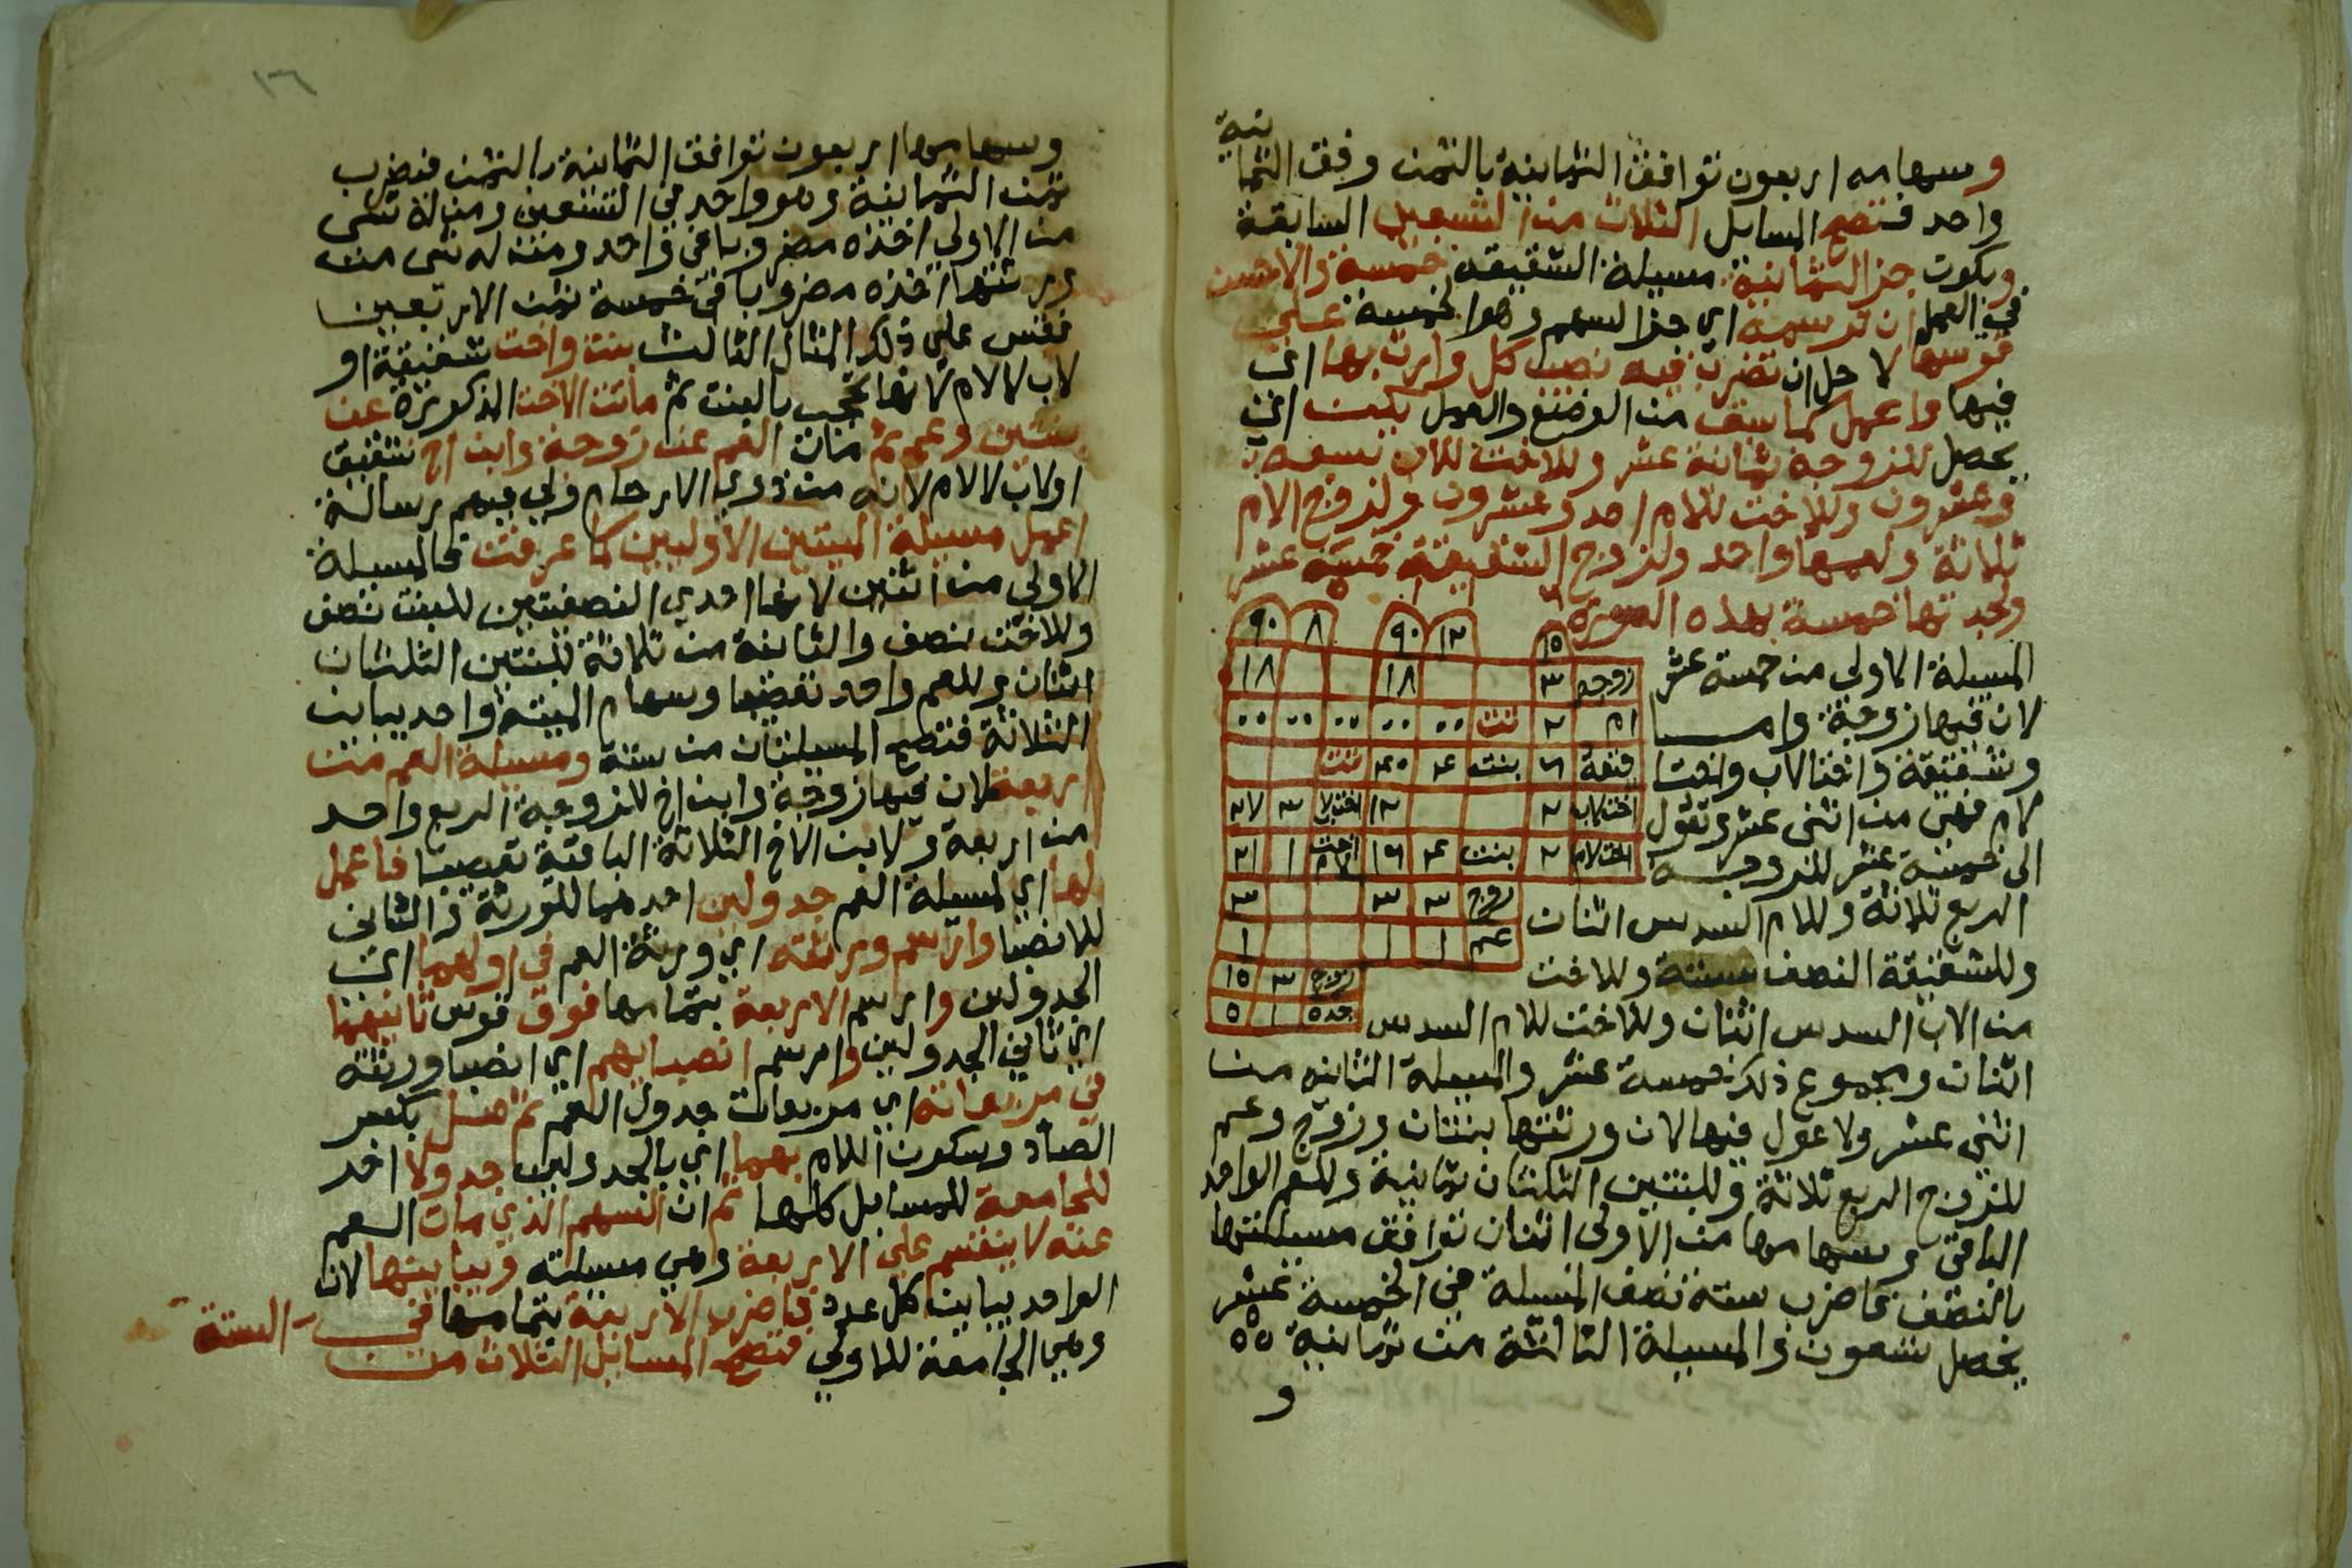 وسهامه اربعون توافق الثمانية بالثمن وفق الثمانية
واحد فتصح المسايل الثلاث من التسعين السابقة
ويكون جز الثمانية مسيلة الشقيقه خمسة والاحسن
في العمل ان ترسمه اي جزا لسهم وهوا لخمسة على
قوسها لاجل ان تضرب فيه نصيب كل وارث بها اي
فيها واعمل كما سبق من الوضع والعمل بكيت اي
يحصل للزوجة ثمانية عشر وللاخت للاب سبعه
وعشرون وللاخت للام احد وعشرون ولزوج الام
ثلاثة ولعمها واحد ولزوج الشقيقة خمسة عشر
ولجدتها خمسة بهذه الصورة
٩٠ ٨ ٩٠ ١٢ ١٥
زوجه ٣ ١٨ ١٨
ام ٢ تت
قتقة ٦ بنت ٤ ٣٠ تت
اخت لاب ٢ ١٢ اخت لاب ٣ ٢٧
اخت لام ٢ بنت ٤ ١٦ اخت لام ١ ٢١
زوج ٣ ٣ ٣
عم ١ ١ ١
زوج ٣ ١٥
جده ١ ٥
المسيلة الاولى من خمسة عشر
لان فيها زوجة واما
وشقيقة واختا لاب واختا
لام فهي من اثني عشر وتعول
الى خمسة عشر للزوجة
الربع ثلاثة وللام السدس اثنان
وللشقيقة النصف ستة وللاخت
من الاب السدس اثنان وللاخت للام السدس
اثنان ومجموع ذلك خمسة عشر والمسيلة الثانيه من
اثني عشر ولا عول فيها لان ورثتها بنتان وزوج وعم
للزوج الربع ثلاثة وللبنتين الثلثان ثمانية وللعم الواحد
الباقي وسهامها من الاولى اثنان توافق مسيلتها
بالنصف فاضرب ستة نصف المسيلة في الخمسة عشر
يحصل تسعون والمسيلة الثالثة من ثمانية
و
١٦
وسهامها اربعون توافق الثمانية بالثمن فتضرب
ثمن الثمانية وهو واحد في التسعين ومن له شى
من الاولي اخذه مضروبا في واحد ومن له شى من
ورثتها اخذه مضروبا في خمسة ثمن الاربعين
فقس على ذلك المثال الثالث بنت واخت شقيقة او
لاب لا لام لانها تحجب بالبنت ثم ماتت الاخت المذكورة عن
بنتين وعم ثم مات العم عن زوجة وابن اخ شقيق
او لاب لا لام لانه من ذوي الارحام ولي فيهم رسالة
اعمل مسيلة الميتين الاوليين كما عرفت فالمسيلة
الاولى من اثنين لانها احدي النصفيتين للبنت نصف
وللاخت نصف والثانية من ثلاثة للبنتين الثلثان
اثنان وللعم واحد تعصيبا وسهام الميتة واحد يباين
الثلاثة فتصح المسيلتان من ستة ومسيلة العم من
اربعة لان فيها زوجة وابن اخ للزوجة الربع واحد
من اربعة ولابن الاخ الثلاثة الباقية تعصيبا فاعمل
لها اي لمسيلة العم جدولين احدهما للورثة والثاني
للانصبا وارسم ورثته اي ورثة العم في اولهما اي
الجدولين وارسم الاربعة بتمامها فوق قوس ثانيهما
اي ثاني الجدولين وارسم انصبايهم اي انصبا ورثته
في مربعاته اي مربعات جدول العم ثم صل بكسر
الصاد وسكون اللام بهما اي بالجدولين جدولا اخر
للجامعة للمسايل كلها ثم ان السهم الذي مات العم
عنه لا ينقسم على الاربعة وهي مسيلته ويباينها لان
الواحد يباين كل عدد فاضرب الاربعة بتمامها في الستة
وهي الجامعة للاولي فتصح المسايل الثلاث من